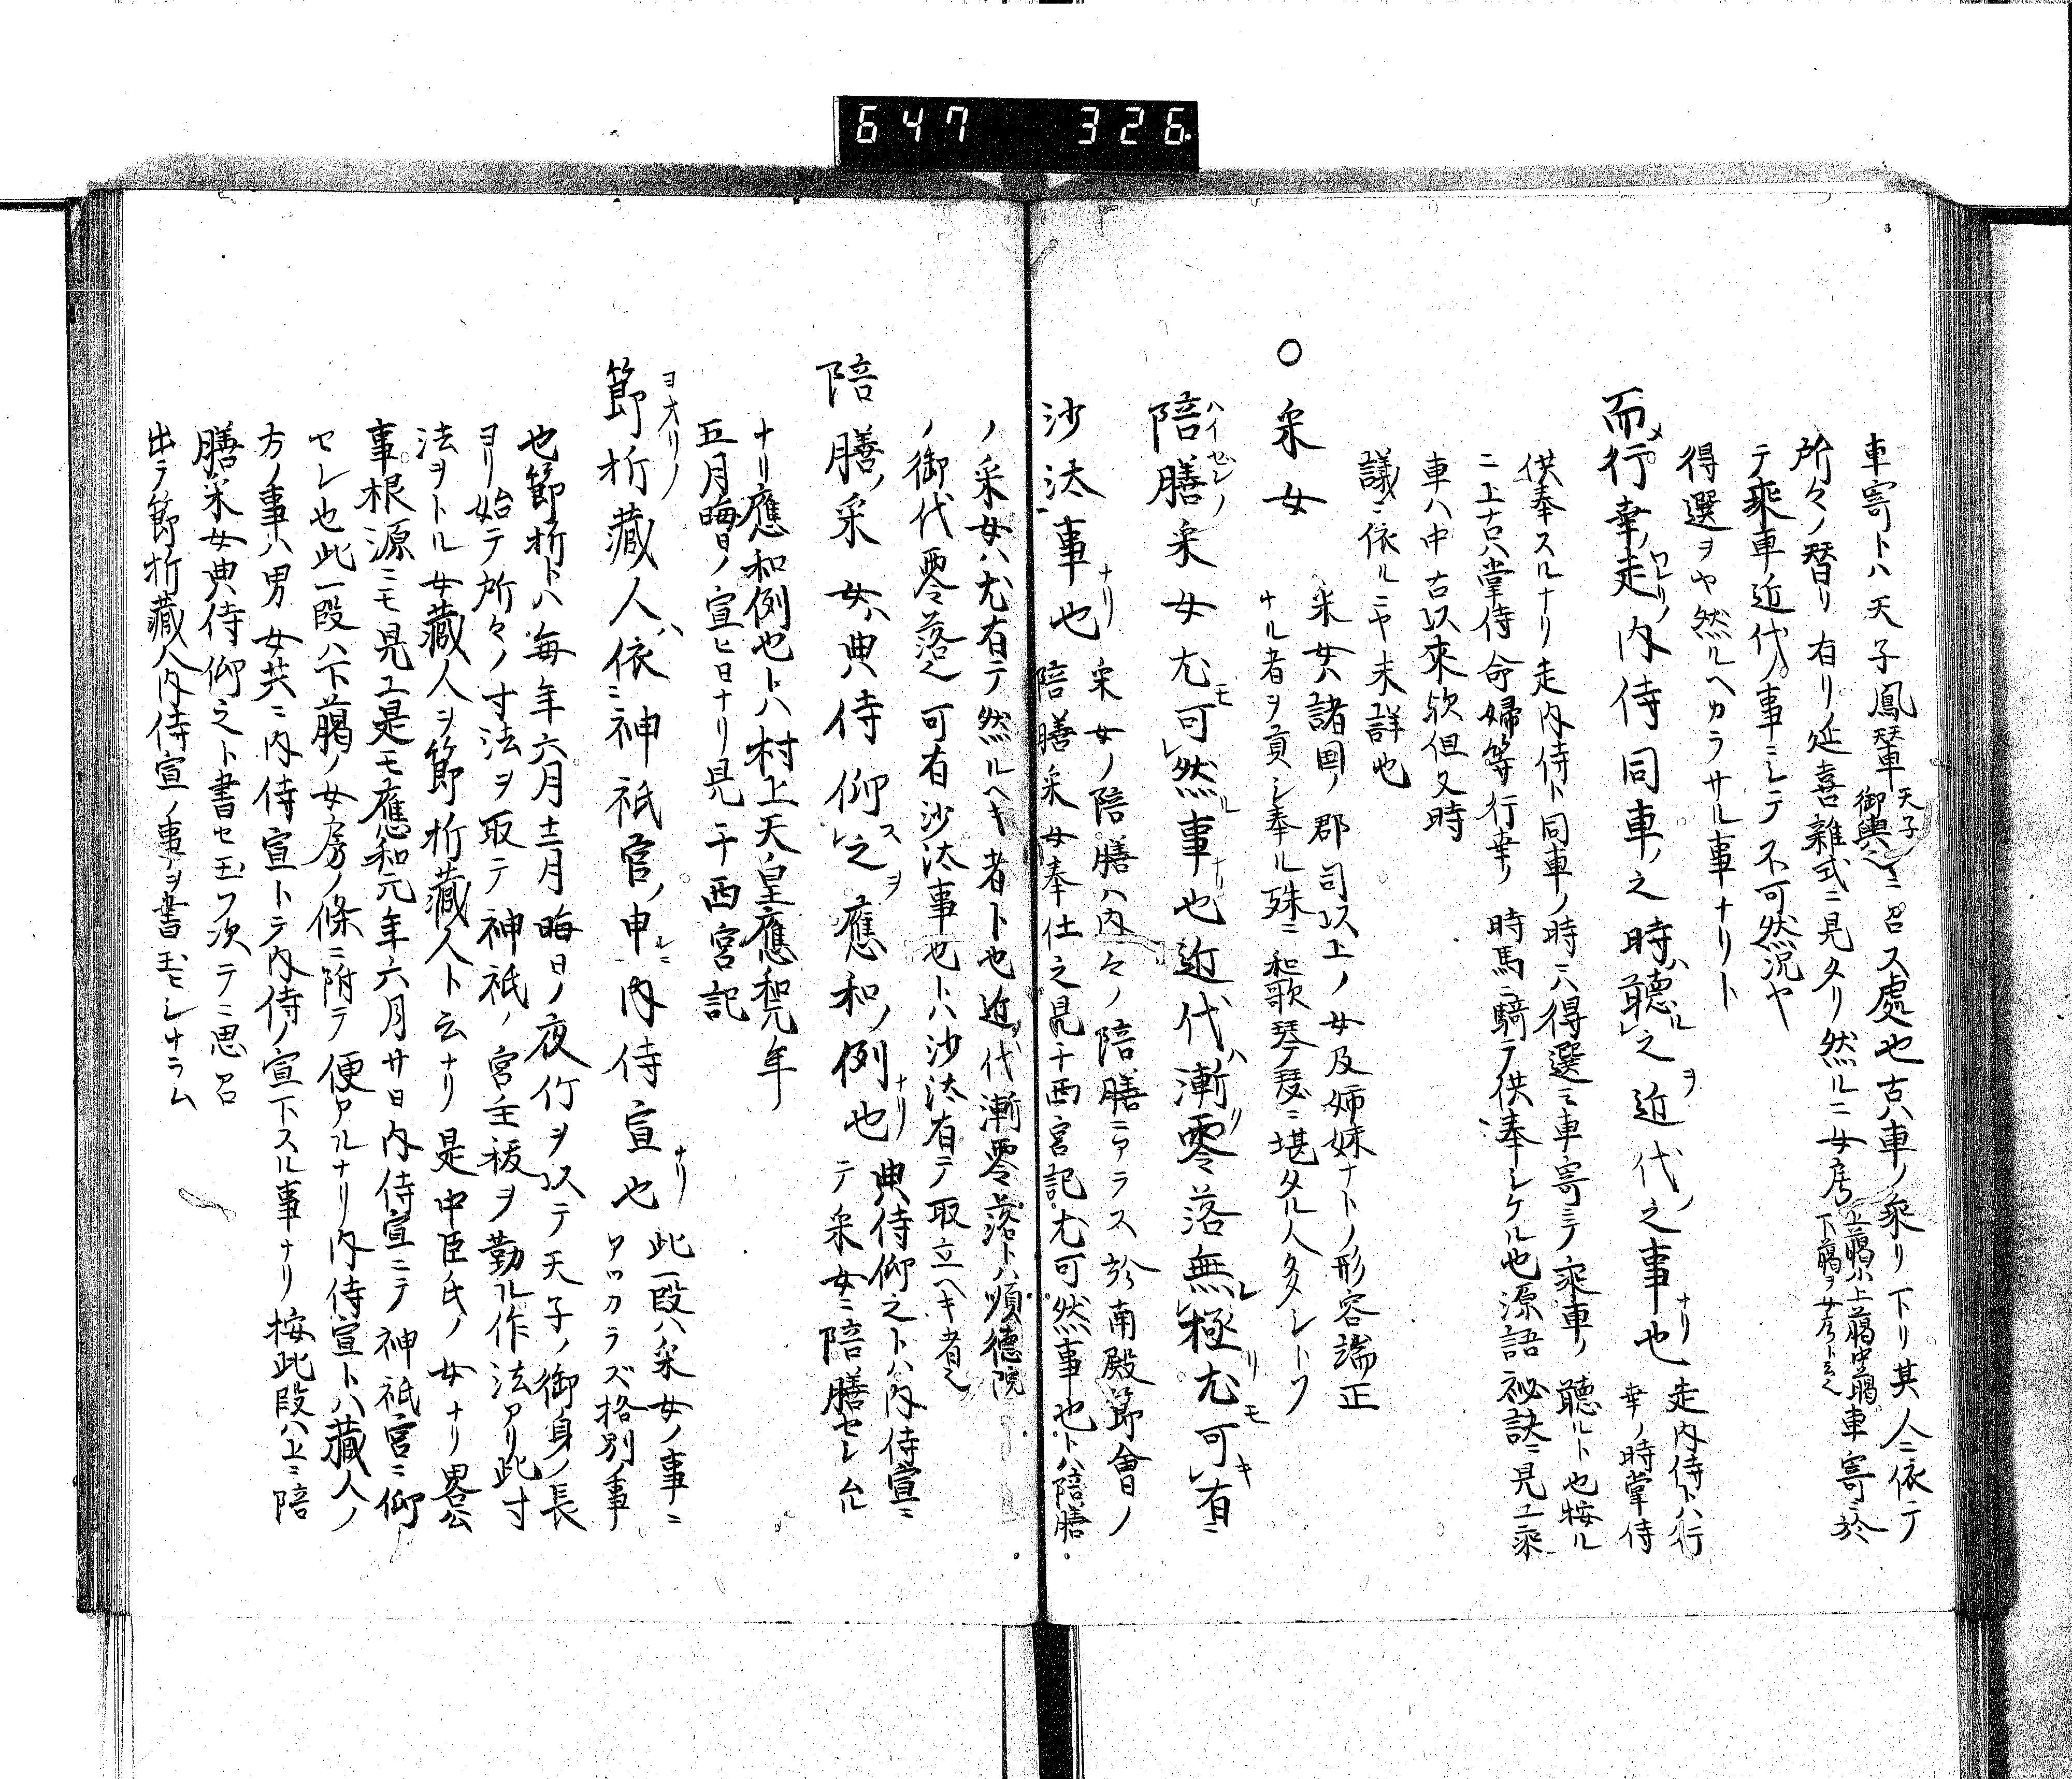 647 326
車寄トハ天子鳳輦車天子御輿也ニ召ス處也古ハ車ノ乘リ下リ其人ニ依テ
所々ノ替リ有リ延喜雜式ニ見タリ然ルニ女房上臈小上臈中臈下臈ヲ女房ト云也車寄ニ於
テ乘車近代ノ事ニシテ不可然況ヤ
得選ヲヤ然ルヘカラサル事ナリト
而行幸ノ走内侍同車之時聽之近代之事也走内侍トハ行幸ノ時掌侍
供奉スルナリ走内侍ト同車ノ時ニハ得選モ車寄ニテ乘車ノ聽ルト也按ル
ニ上古ハ掌侍命婦等行幸ノ時馬ニ騎テ供奉シケル也源語祕訣ニ見エ乘
車ハ中古以來歟但又時
議ニ依ルニヤ未詳也
○采女 采女ハ諸國ノ郡司以上ノ女及姉妹ナトノ形容端正
ナル者ヲ貢シ奉ル殊ニ和歌琴瑟ニ堪タル人多シトフ
陪膳采女尤可然事也近代漸零落無極尤可有
沙汰事也 采女ノ陪膳ハ内々ノ陪膳ニアラス於南殿節會ノ
陪膳采女奉仕之見于西宮記尤可然事也トハ陪膳
ノ采女ハ尤有テ然ルヘキ者ト也近代漸零落トハ順德院
ノ御代零落也可有沙汰事也トハ沙汰有テ取立ヘキ者也
陪膳ノ采女ハ典侍仰之應和ノ例也 典侍仰之トハ内侍宣ニ
テ采女ニ陪膳セシムル
ナリ應和例也トハ村上天皇應和元年
五月晦日ノ宣ヒ日ナリ見于西宮記
節折藏人ハ依神祇官ノ申ニ内侍宣也 此一段ハ采女ノ事ニ
アツカラズ格別ノ事
也節折トハ毎年六月十二月晦日ノ夜竹ヲ以テ天子ノ御身ノ長
ヨリ始テ所々ノ寸法ヲ取テ神祇ノ宮主祓ヲ勤ル作法アリ此寸
法ヲトル女藏人ヲ節折藏人ト云ナリ是中臣ノ氏ノ女ナリ畧公
事根源ニモ見エ是モ應和元年六月廿日内侍宣ニテ神祇官ニ仰
セレ也此一段ハ下臈ノ女房ノ條ニ附テ便アルナリ内侍宣トハ藏人ノ
方ノ事ハ男女共ニ内侍宣トテ内侍ノ宣下スル事ナリ按此段ハ上ニ陪
膳采女典侍仰之ト書セ玉フ次テニ思召
出テ節折藏人内侍宣ノ事ヲ書玉ヒシナラム